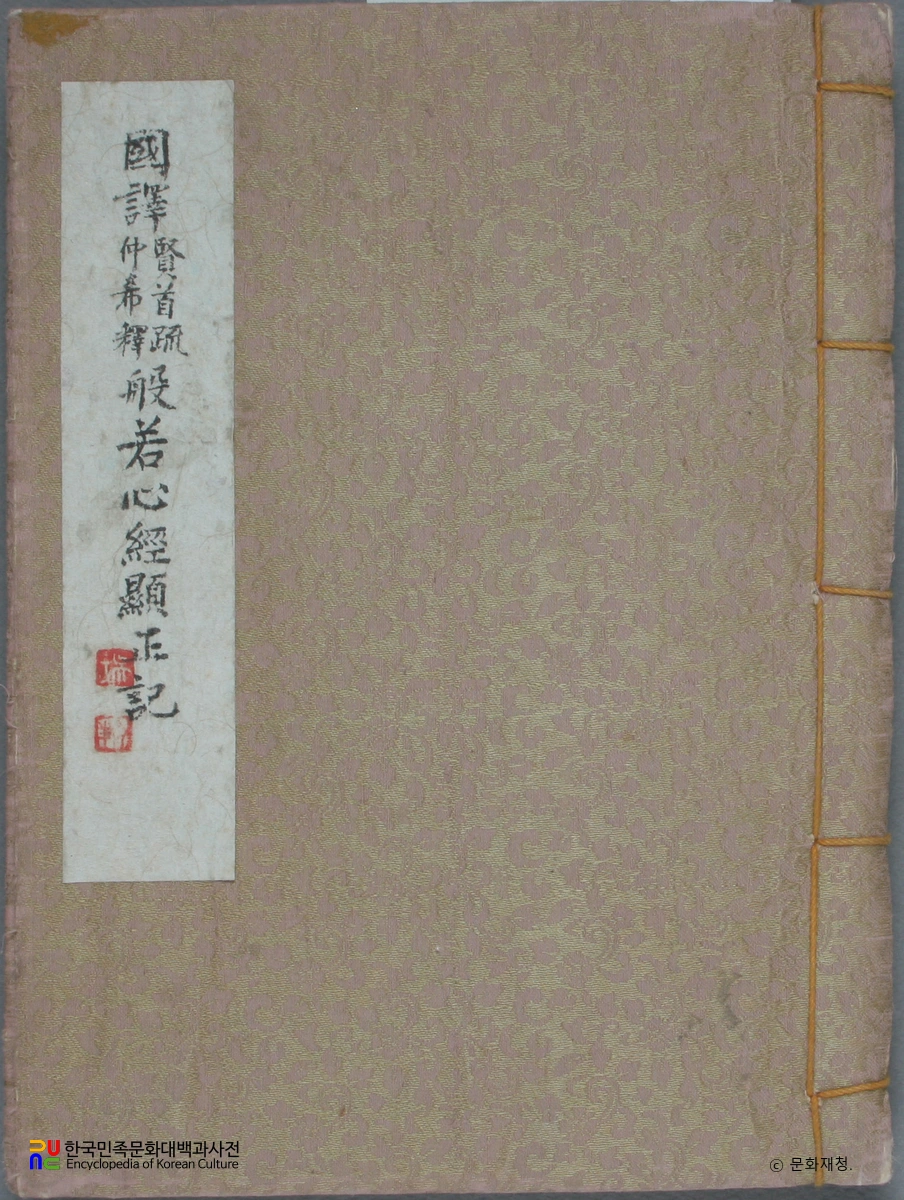 國譯賢首疏仲希釋般若心經顯正記
한국민족문화대백과사전
Encyclopedia of Korean Culture
ⓒ 문화재청.